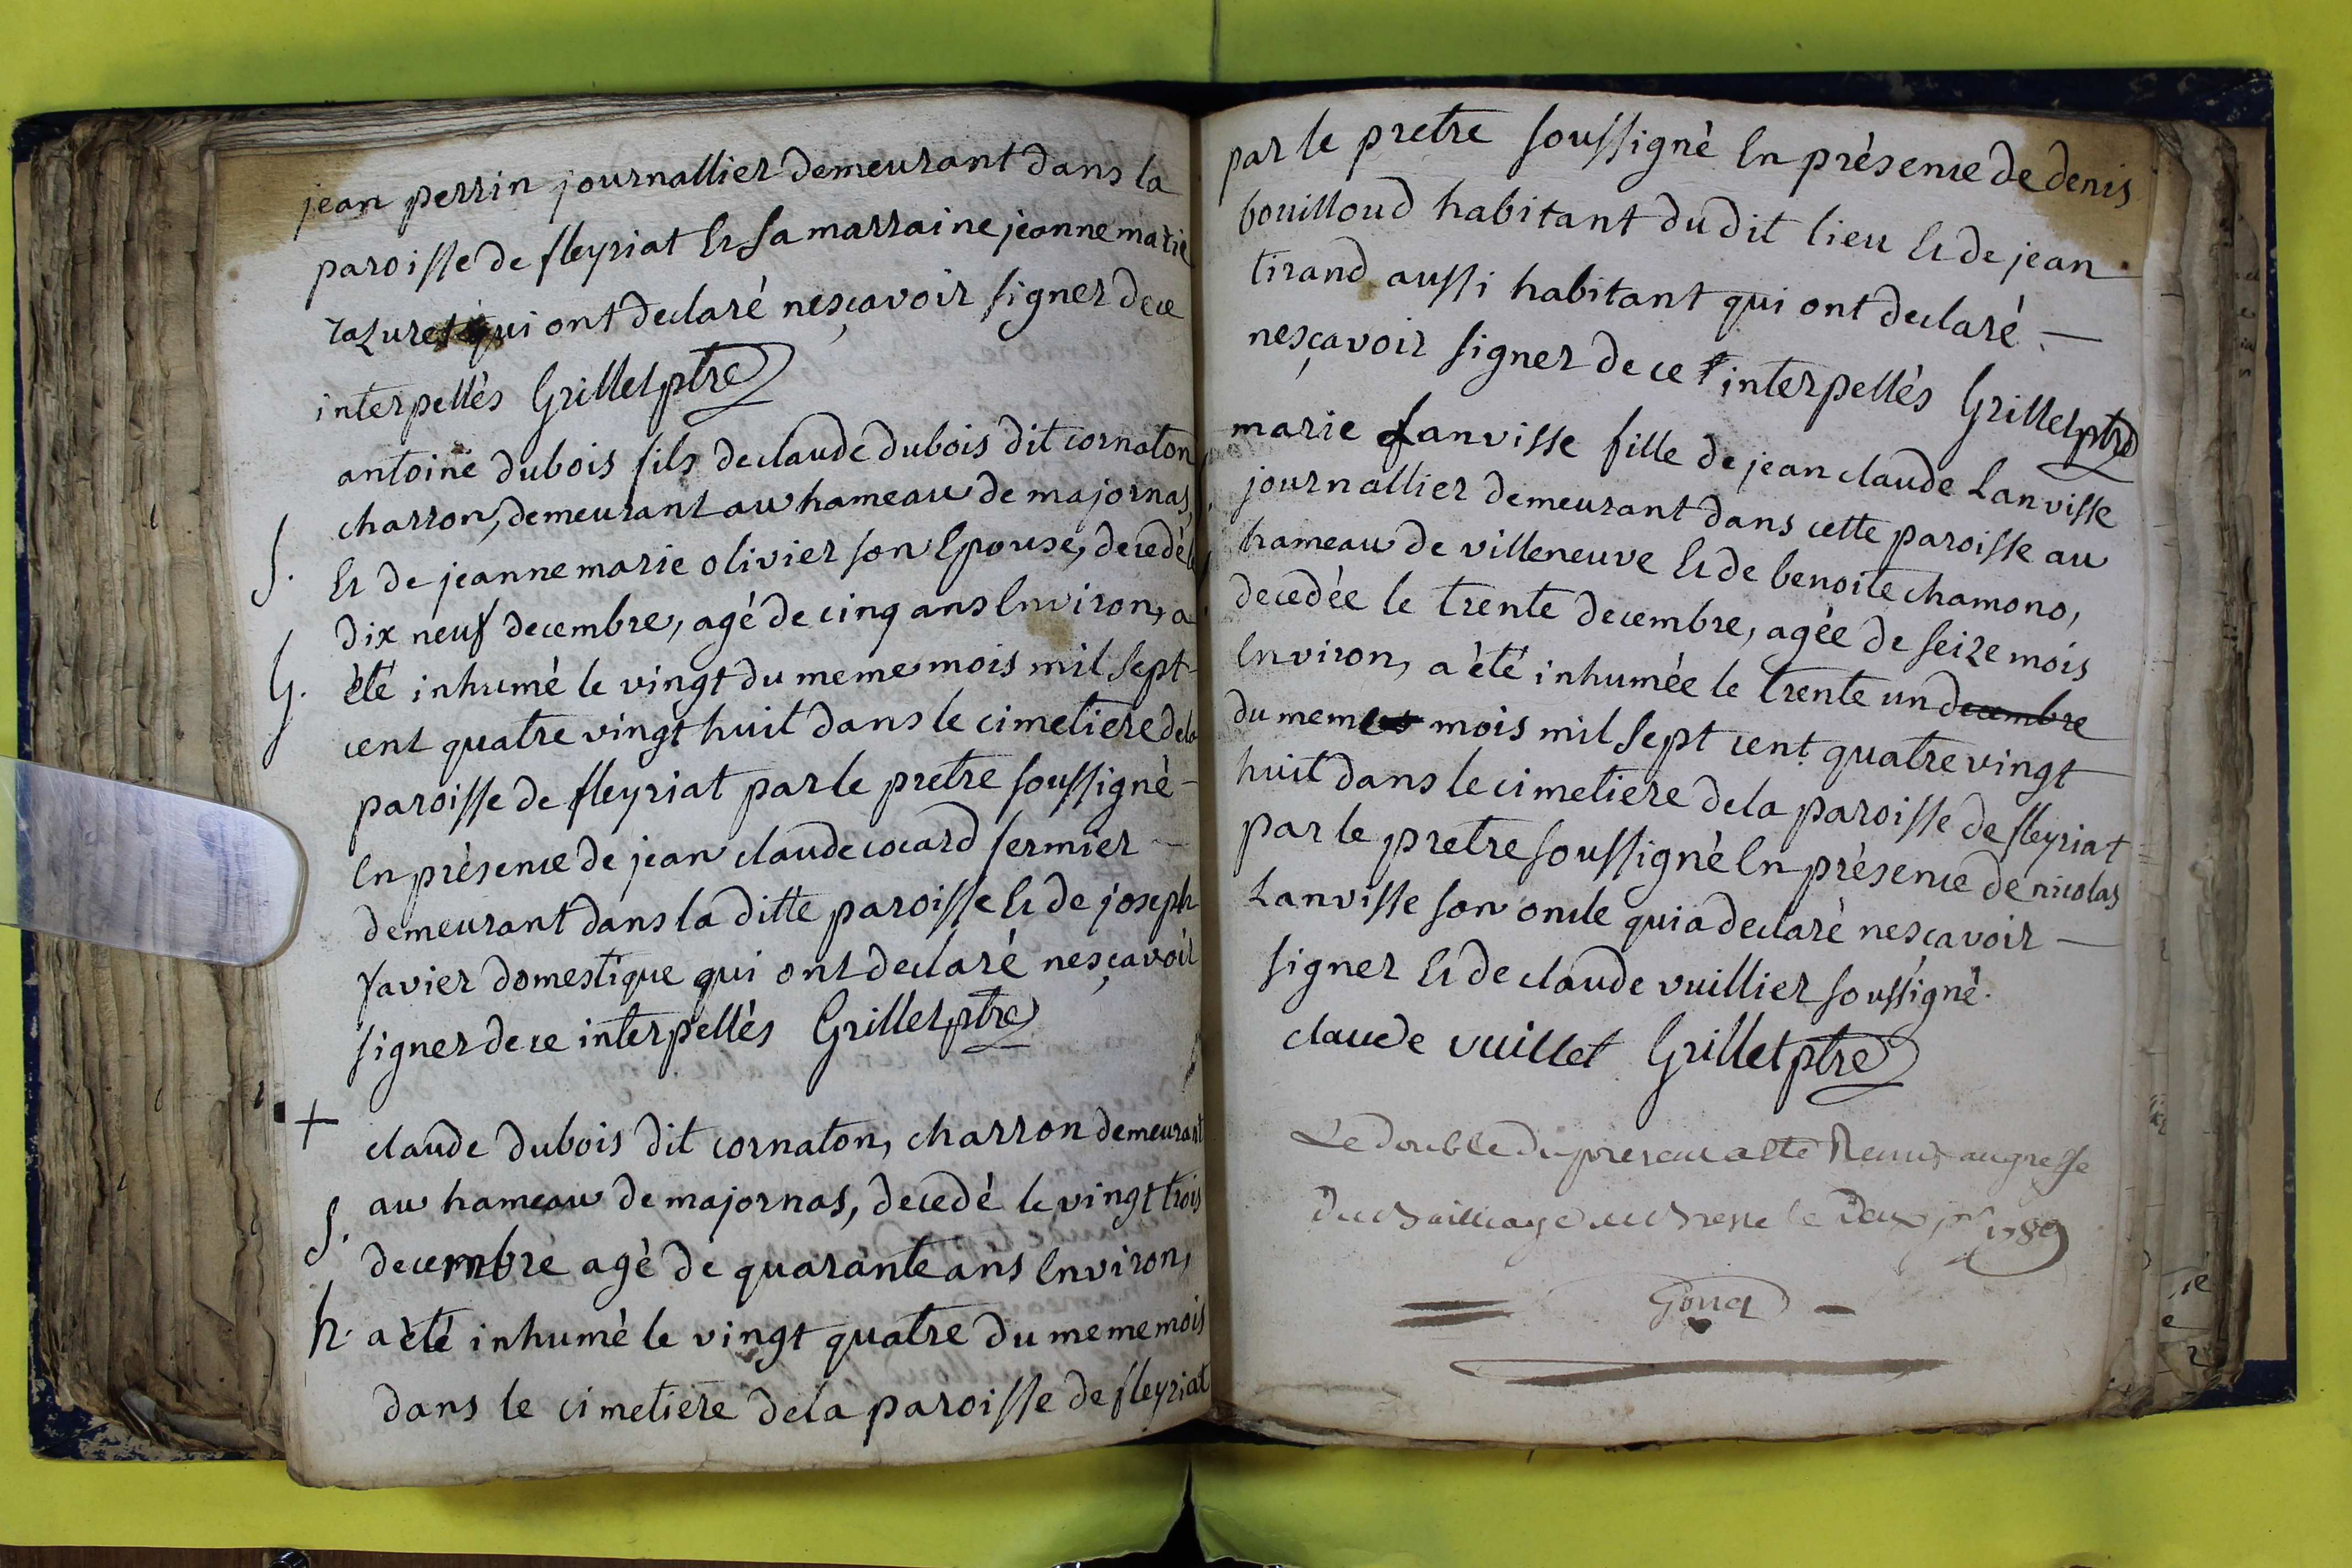 jean perrin journallier demeurant dans la
paroisse de fleyriat et sa marraine jeanne marie
razuret qui ont declaré nesçavoir signer de ce
interpellés Grillet ptre
antoine dubois fils de claude dubois dit cornaton
charron, demeurant au hameau de majornas,
S. et de jeanne marie olivier son epouse, decedé le
dix neuf decembre, agé de cinq ans environ, a
G. été inhumé le vingt du meme mois mil sept
cent quatre vingt huit dans le cimetiere de la
paroisse de fleyriat par le pretre soussigné -
en présence de jean claude cocard fermier -
demeurant dans la ditte paroisse et de joseph
favier domestique qui ont declaré nesçavoir
signer de ce interpellés Grillet ptre
+ claude dubois dit cornaton, charron demeurant
au hameau de majornas, decedé le vingt trois
S. decembre agé de quarante ans environ,
h. a été inhumé le vingt quatre du meme mois
dans le cimetiere de la paroisse de fleyriat
par le pretre soussigné en présence de denis
bouilloud habitant du dit lieu et de jean
tirand aussi habitant qui ont declaré —
nesçavoir signer de ce interpellés Grillet ptre
marie Lanvisse fille de jean claude Lanvisse
journallier demeurant dans cette paroisse au
hameau de villeneuve et de benoite chamono,
decedée le trente decembre, agée de seize mois
environ, a été inhumée le trente un decembre
du meme mois mil sept cent quatre vingt
huit dans le cimetiere de la paroisse de fleyriat
par le pretre soussigné en présence de nicolas
Lanvisse son oncle qui a declaré nesçavoir —
signer et de claude vuillier soussigné.
claude vuillet Grillet ptre
Le double du present acte Remis au greffe
du Bailliage de Bresse le deux jer 1789